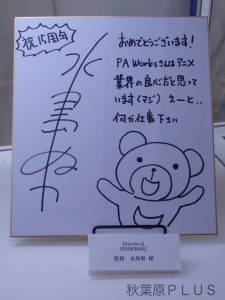 祝15周年
おめでとうございます!
PA Worksさんはアニメ
業界の良心だと思って
います(マジ) えーと‥
何か仕事下さい
『Another』
『SHIROBAKO』
監督 水島努 様
秋葉原PLUS